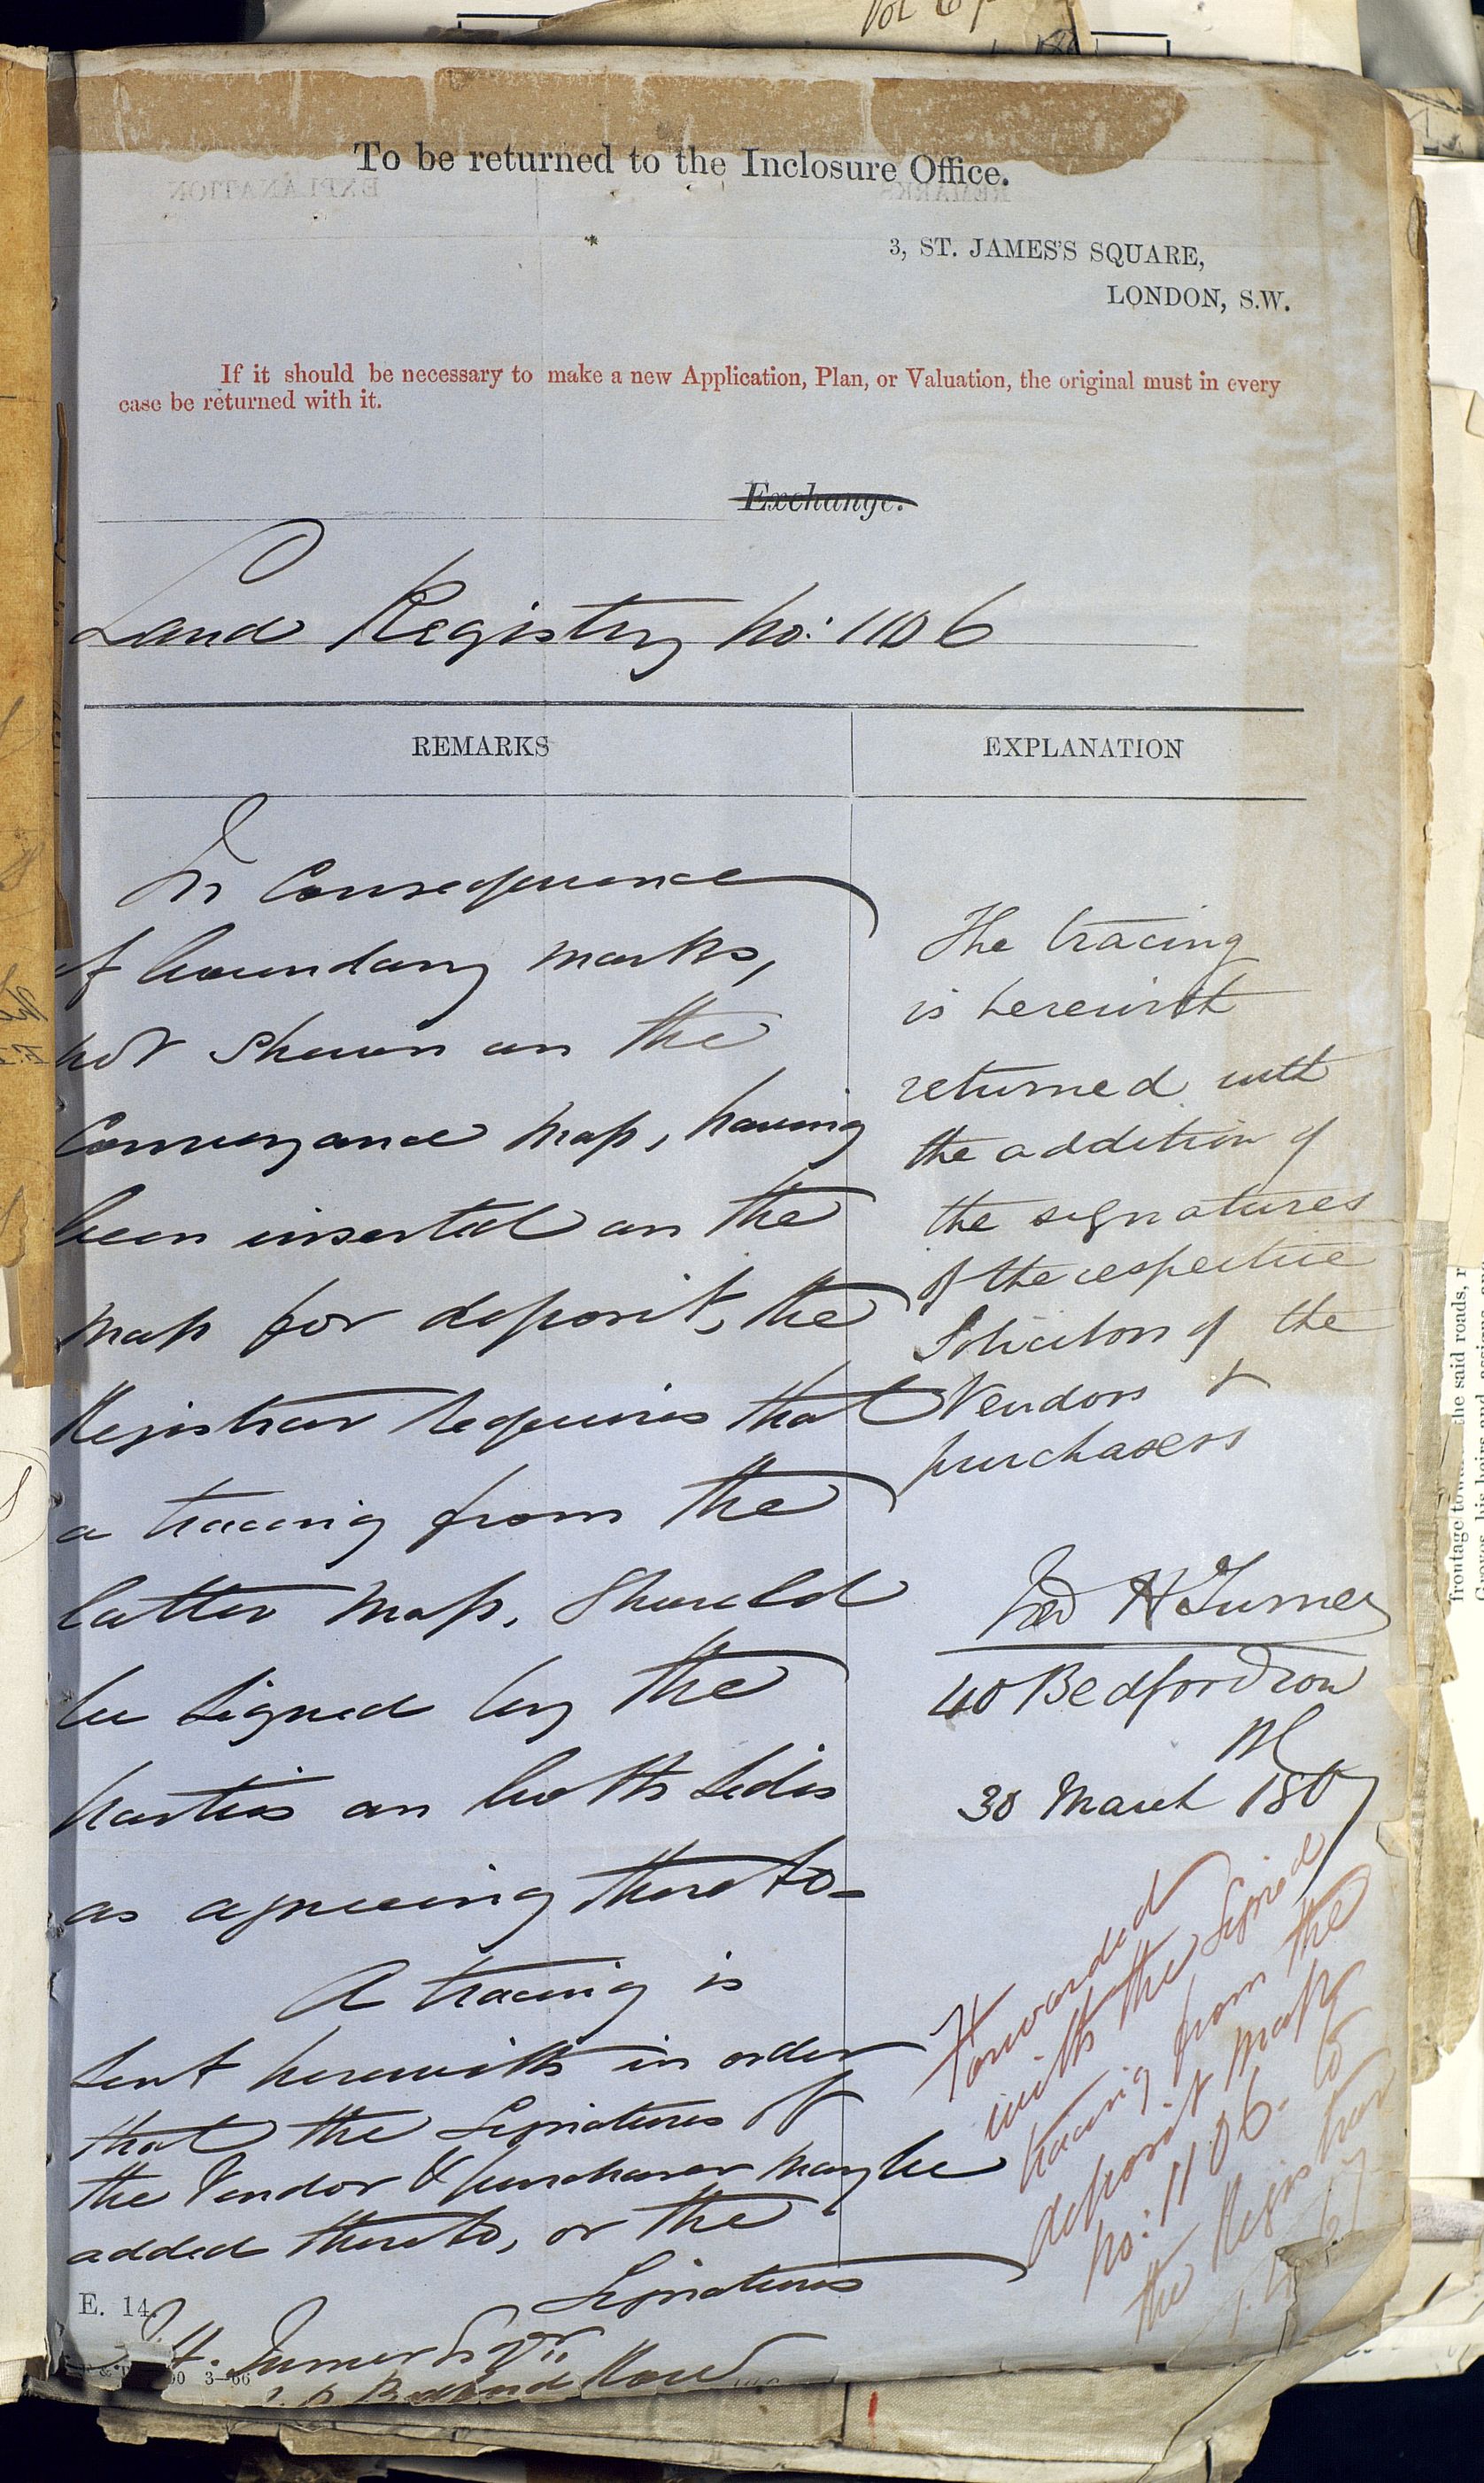 To be returned to the Inclosure Office.
3, ST. JAMES'S SQUARE,
LONDON, S.W.
If it should be necessary to make a new Application, Plan, or Valuation, the original must in every
case be returned with it.
Exchange.
Land Registry No: 1106
REMARKS
In Consequence
of boundary marks,
not shewn on the
Conveyance Map, having
been inserted on the
Map for deposit, the
Registrar requires that
a tracing from the
latter Map, should
be signed by the
parties on both sides
as agreeing thereto-
A tracing is
sent herewith in order
that the Signatures of
the Vendor & purchaser may be
added thereto, or the
Signatures
E. 14.
H. Turner Esqre
Bedford Row
3—66
EXPLANATION
The tracing
is herewith
returned with
the addition of
the signatures
of the respective
Solicitors of the
Vendors &
purchasers
Fred H Turner
40 Bedford row
30 March 1867
Forwarded
with the signed
tracing from the
deposit Map
No: 1106. to
the Registrar
frontage towards the said roads,